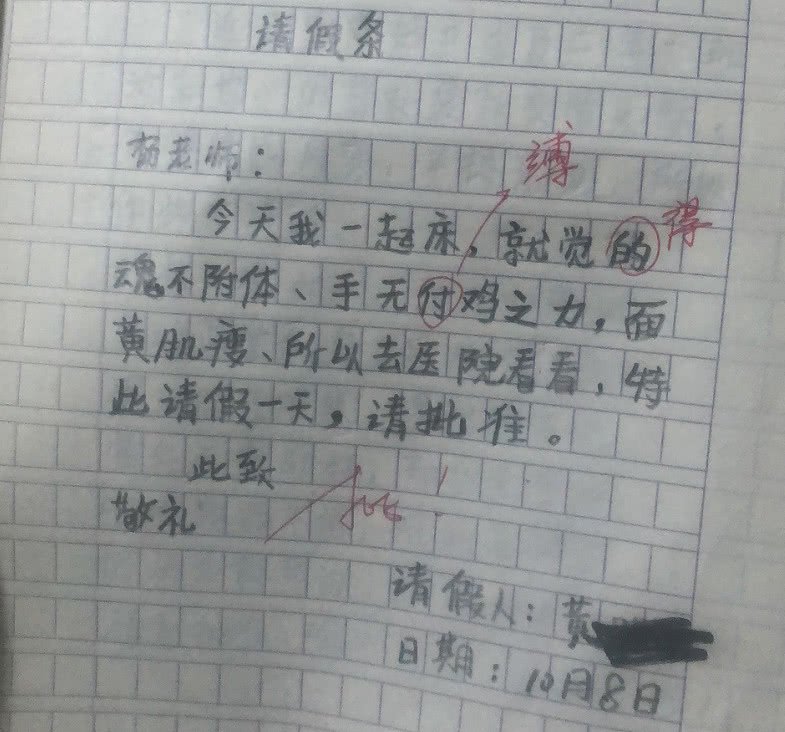 请假条
杨老师：
缚
今天我一起床，就觉的 得
魂不附体、手无付鸡之力，面
黄肌瘦、所以去医院看看，特
此请假一天，请批准。
此致
敬礼
批！
请假人：黄
日期：10月8日